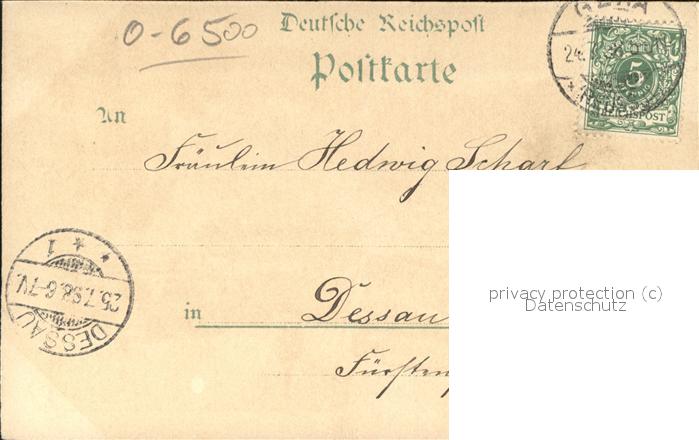 0-6500
Deutsche Reichspost
Postkarte
GERA
5
REICHSPOST
An
Fräulein Hedwig Scharf
privacy protection (c)
Datenschutz
in Dessau
DESSAU
1
25.7.98.6-7V.